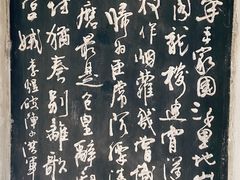 年来家國三千里地山
閣龍樓連霄漢
枝作烟蘿幾曾識
歸為臣虜沈腰潘
磨最是倉皇辭廟
坊猶奏别離歌
宮娥 李煜破陣子 洪軍